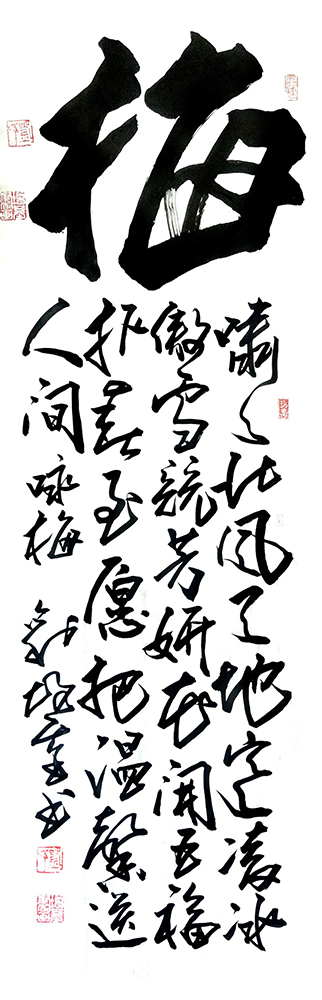 梅
啸々北风天地寒凌冰
傲雪競芳妍花開五福
报春至愿把温馨送
人间 咏梅 书